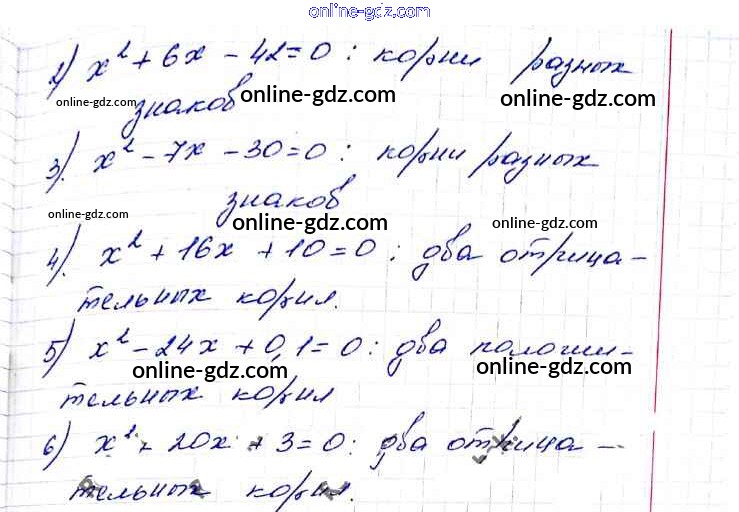 online-gdz.com
2) x² + 6x - 42 = 0 : корни разных
online-gdz.com online-gdz.com online-gdz.com
знаков
3). x² - 7x - 30 = 0 : корни разных
знаков
online-gdz.com online-gdz.com online-gdz.com
4). x² + 16x + 10 = 0 ; два отрица-
тельных корня.
online-gdz.com
5) x² - 24x + 0,1 = 0 : два положи-
online-gdz.com online-gdz.com
тельных корня
6) x² - 20x + 3 = 0 : два отрица-
тельных корня.